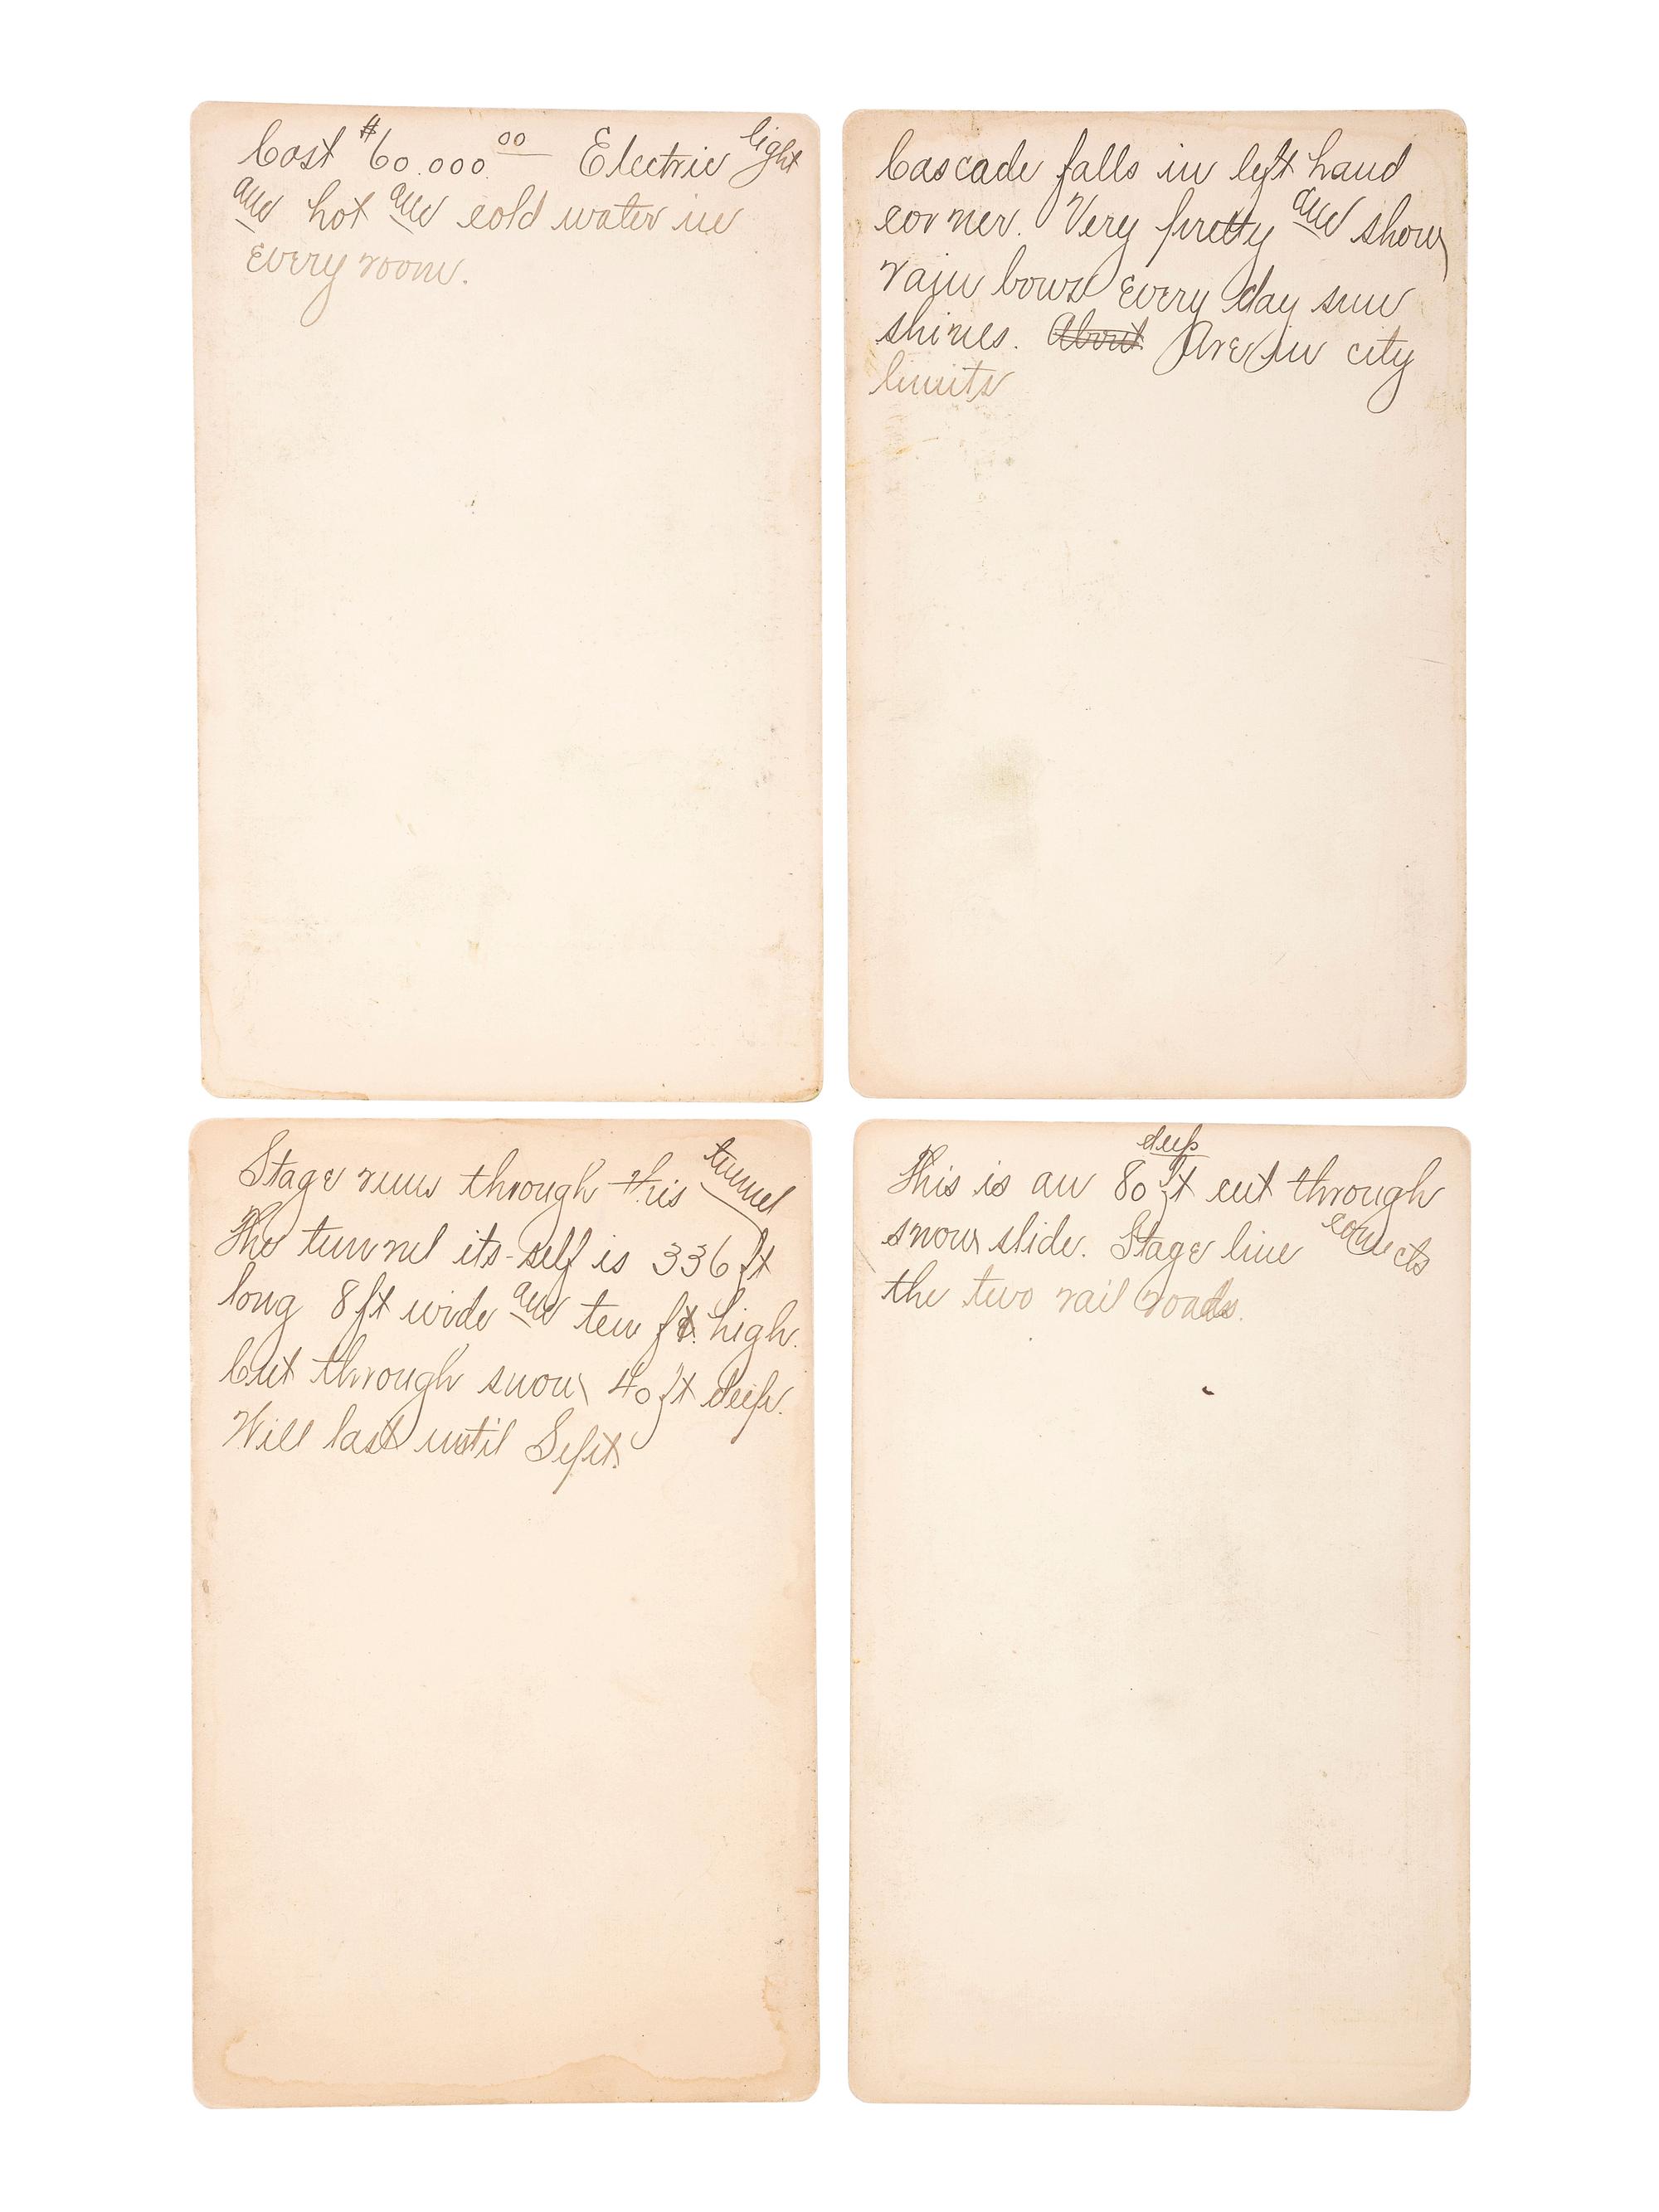 Cost $60.000.00 Electric light
and hot and cold water in
every room.
Cascade falls in left hand
corner. Very pretty and show
rain bows every day sun
shines. About Are in city
limits
Stage runs through this tunnel
The tunnel its-self is 336 ft
long 8 ft wide and ten ft. high.
Cut through snow 40 ft deep.
Will last until Sept.
This is an 80 ft deep cut through
snow slide. Stage line connects
the two rail roads.